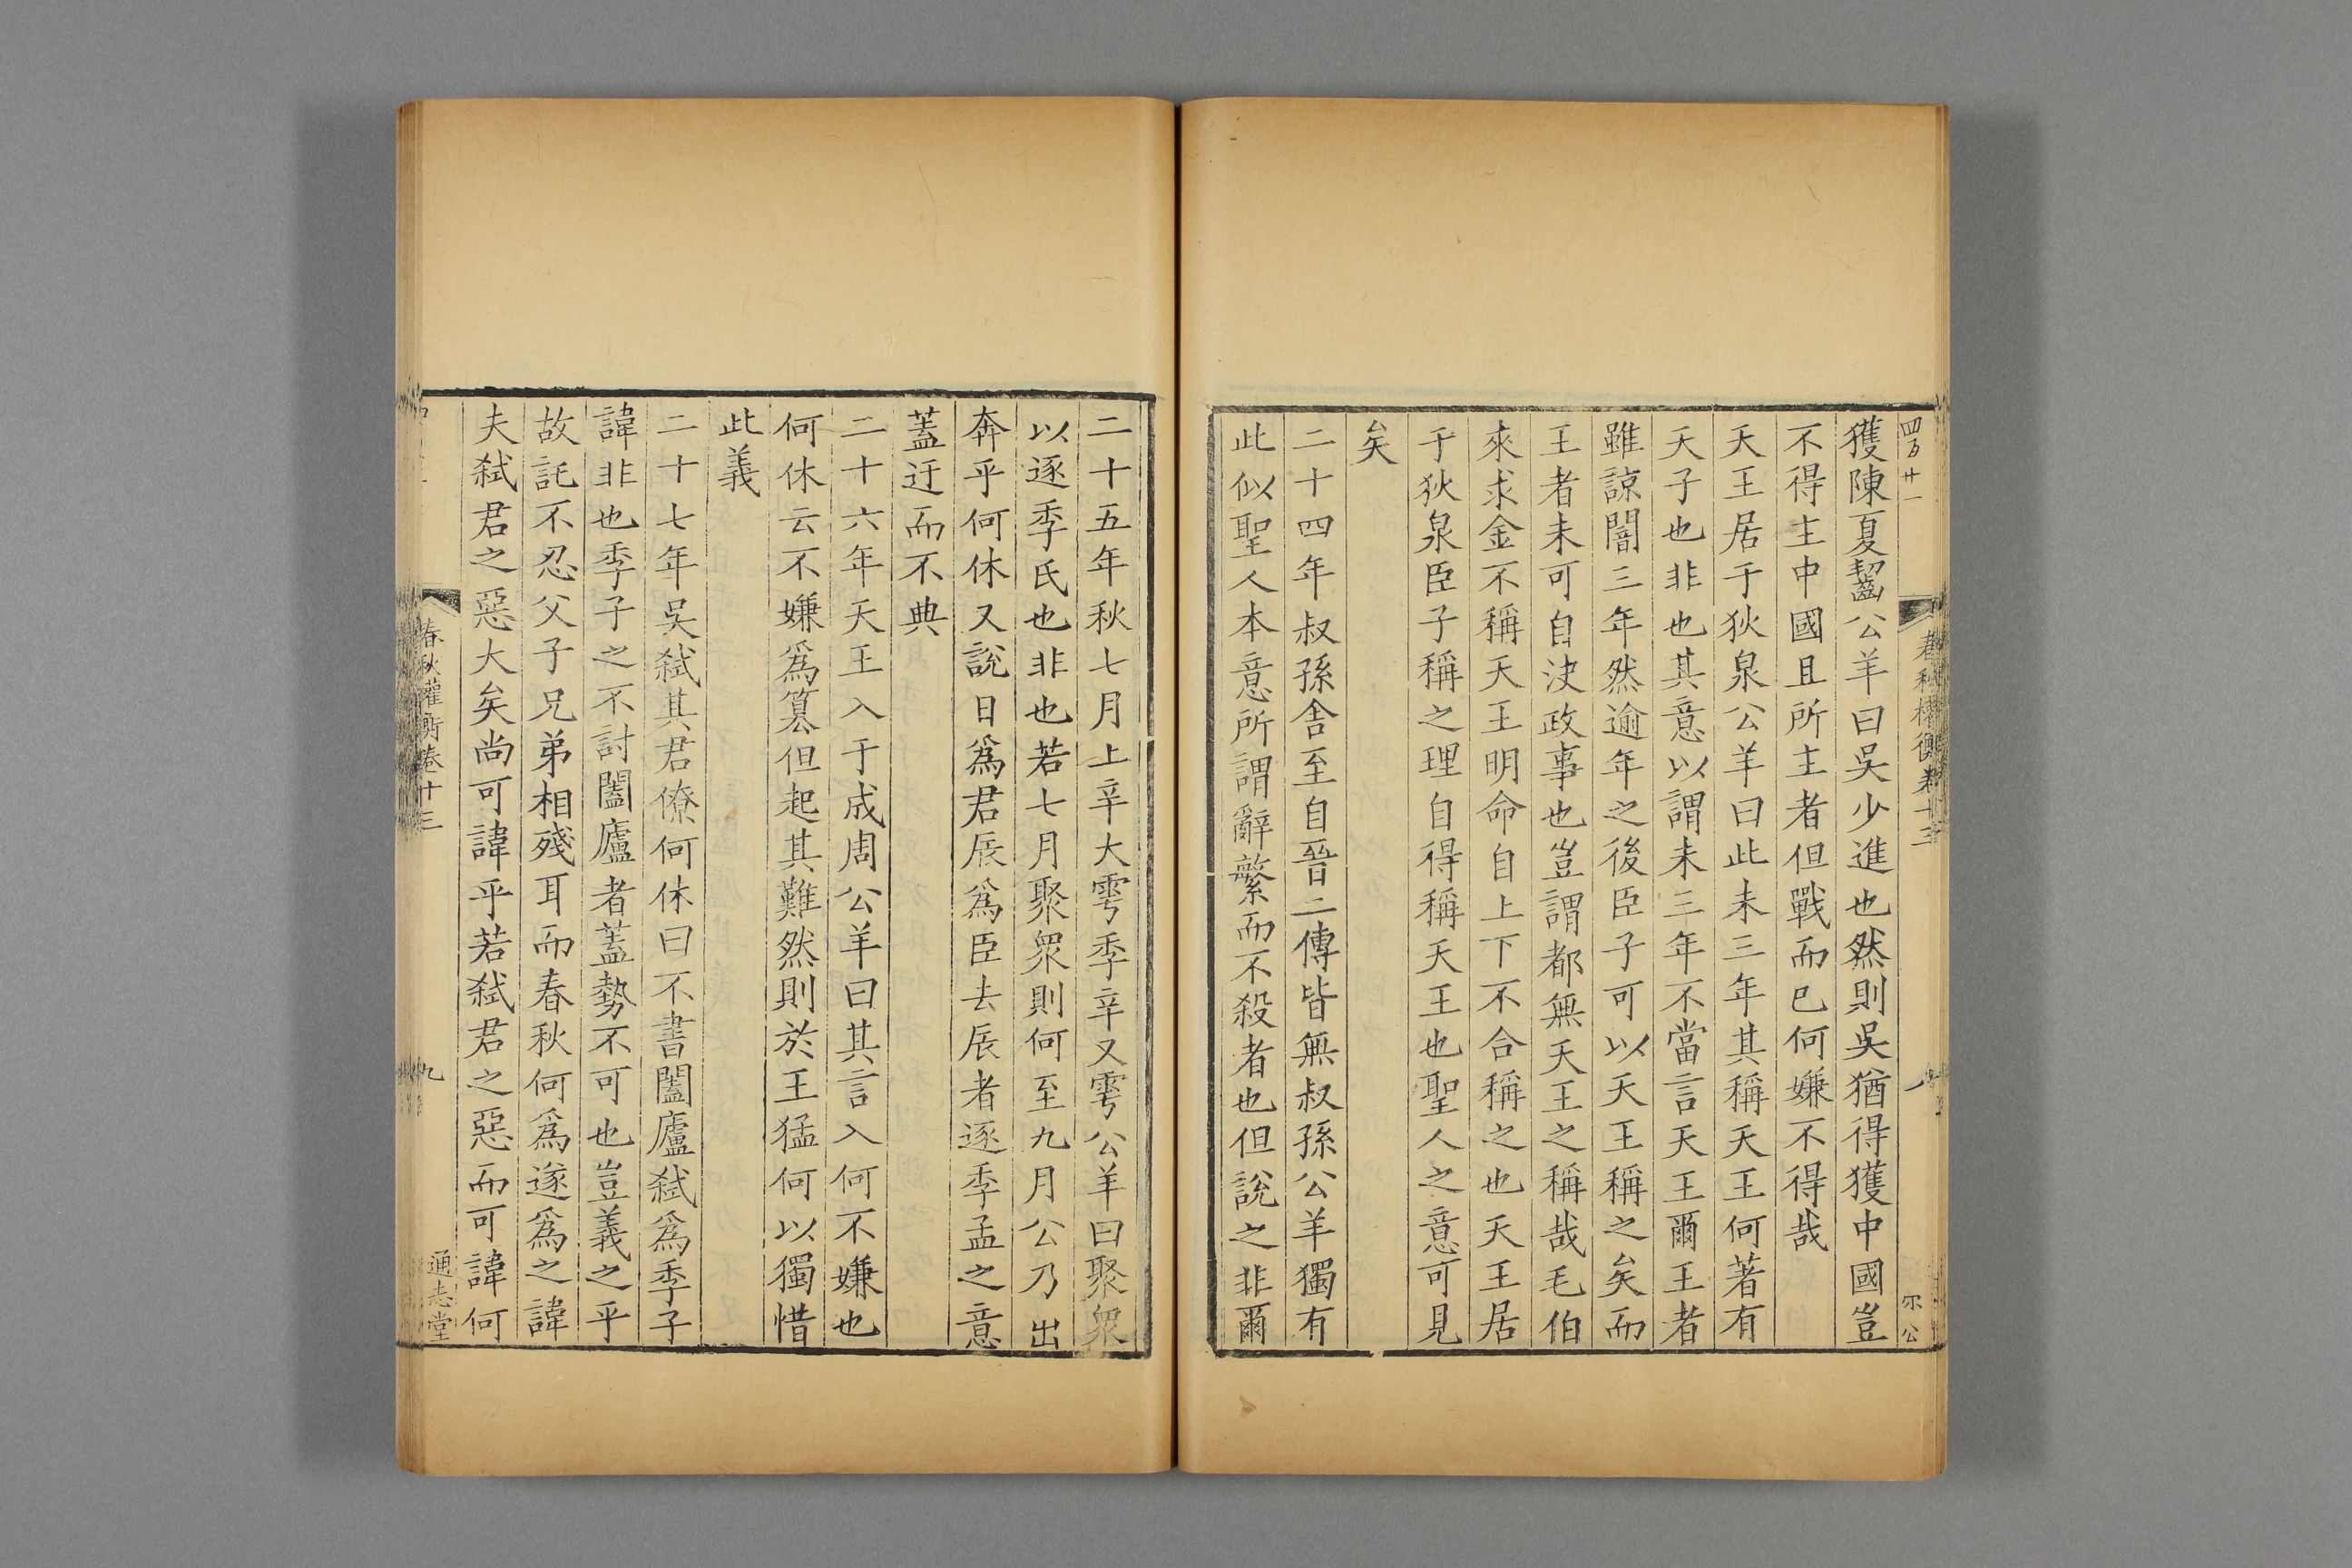 四百廿一
獲陳夏齧公羊曰吳少進也然則吳猶得獲中國豈
不得主中國且所主者但戰而已何嫌不得哉
天王居于狄泉公羊曰此未三年其稱天王何著有
天子也非也其意以謂未三年不當言天王爾王者
雖諒闇三年然逾年之後臣子可以天王稱之矣而
王者未可自決政事也豈謂都無天王之稱哉毛伯
來求金不稱天王明命自上下不合稱之也天王居
于狄泉臣子稱之理自得稱天王也聖人之意可見
矣
二十四年叔孫舍至自晉二傳皆無叔孫公羊獨有
此似聖人本意所謂辭繁而不殺者也但說之非爾
二十五年秋七月上辛大雩季辛又雩公羊曰聚衆
以逐季氏也非也若七月聚衆則何至九月公乃出
奔乎何休又說日為君辰為臣去辰者逐季孟之意
蓋迂而不典
二十六年天王入于成周公羊曰其言入何不嫌也
何休云不嫌為篡但起其難然則於王猛何以獨惜
此義
二十七年吳弒其君僚何休曰不書闔廬弒為季子
諱非也季子之不討闔廬者蓋勢不可也豈義之乎
故託不忍父子兄弟相殘耳而春秋何為遂為之諱
夫弒君之惡大矣尚可諱乎若弒君之惡而可諱何
春秋權衡卷十三
九
通志堂